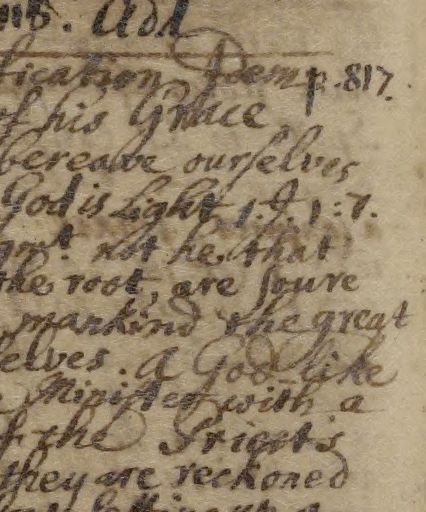 . Add
fication Poem p. 817.
of his Grace
bereave ourselves
God is Light 1. J. 1: 7.
not he that
the root, are soure
mankind the great
selves. A God-like
Minister with a
of the Priests
they are reckoned